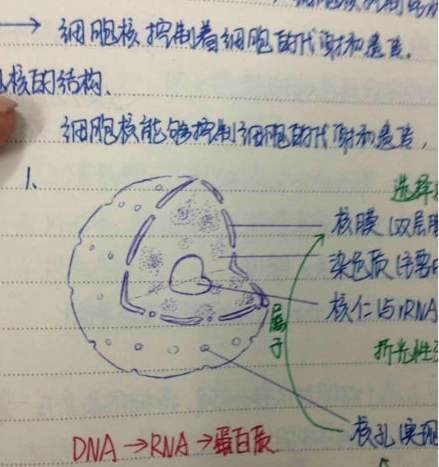 → 细胞核控制着细胞的代谢和遗传.
核的结构.
细胞核能够控制细胞的代谢和遗传,
1.
选择
核膜(双层膜
染色质(主要由
核仁(与rRNA
属于
折光性
核孔(实现
DNA→RNA→蛋白质